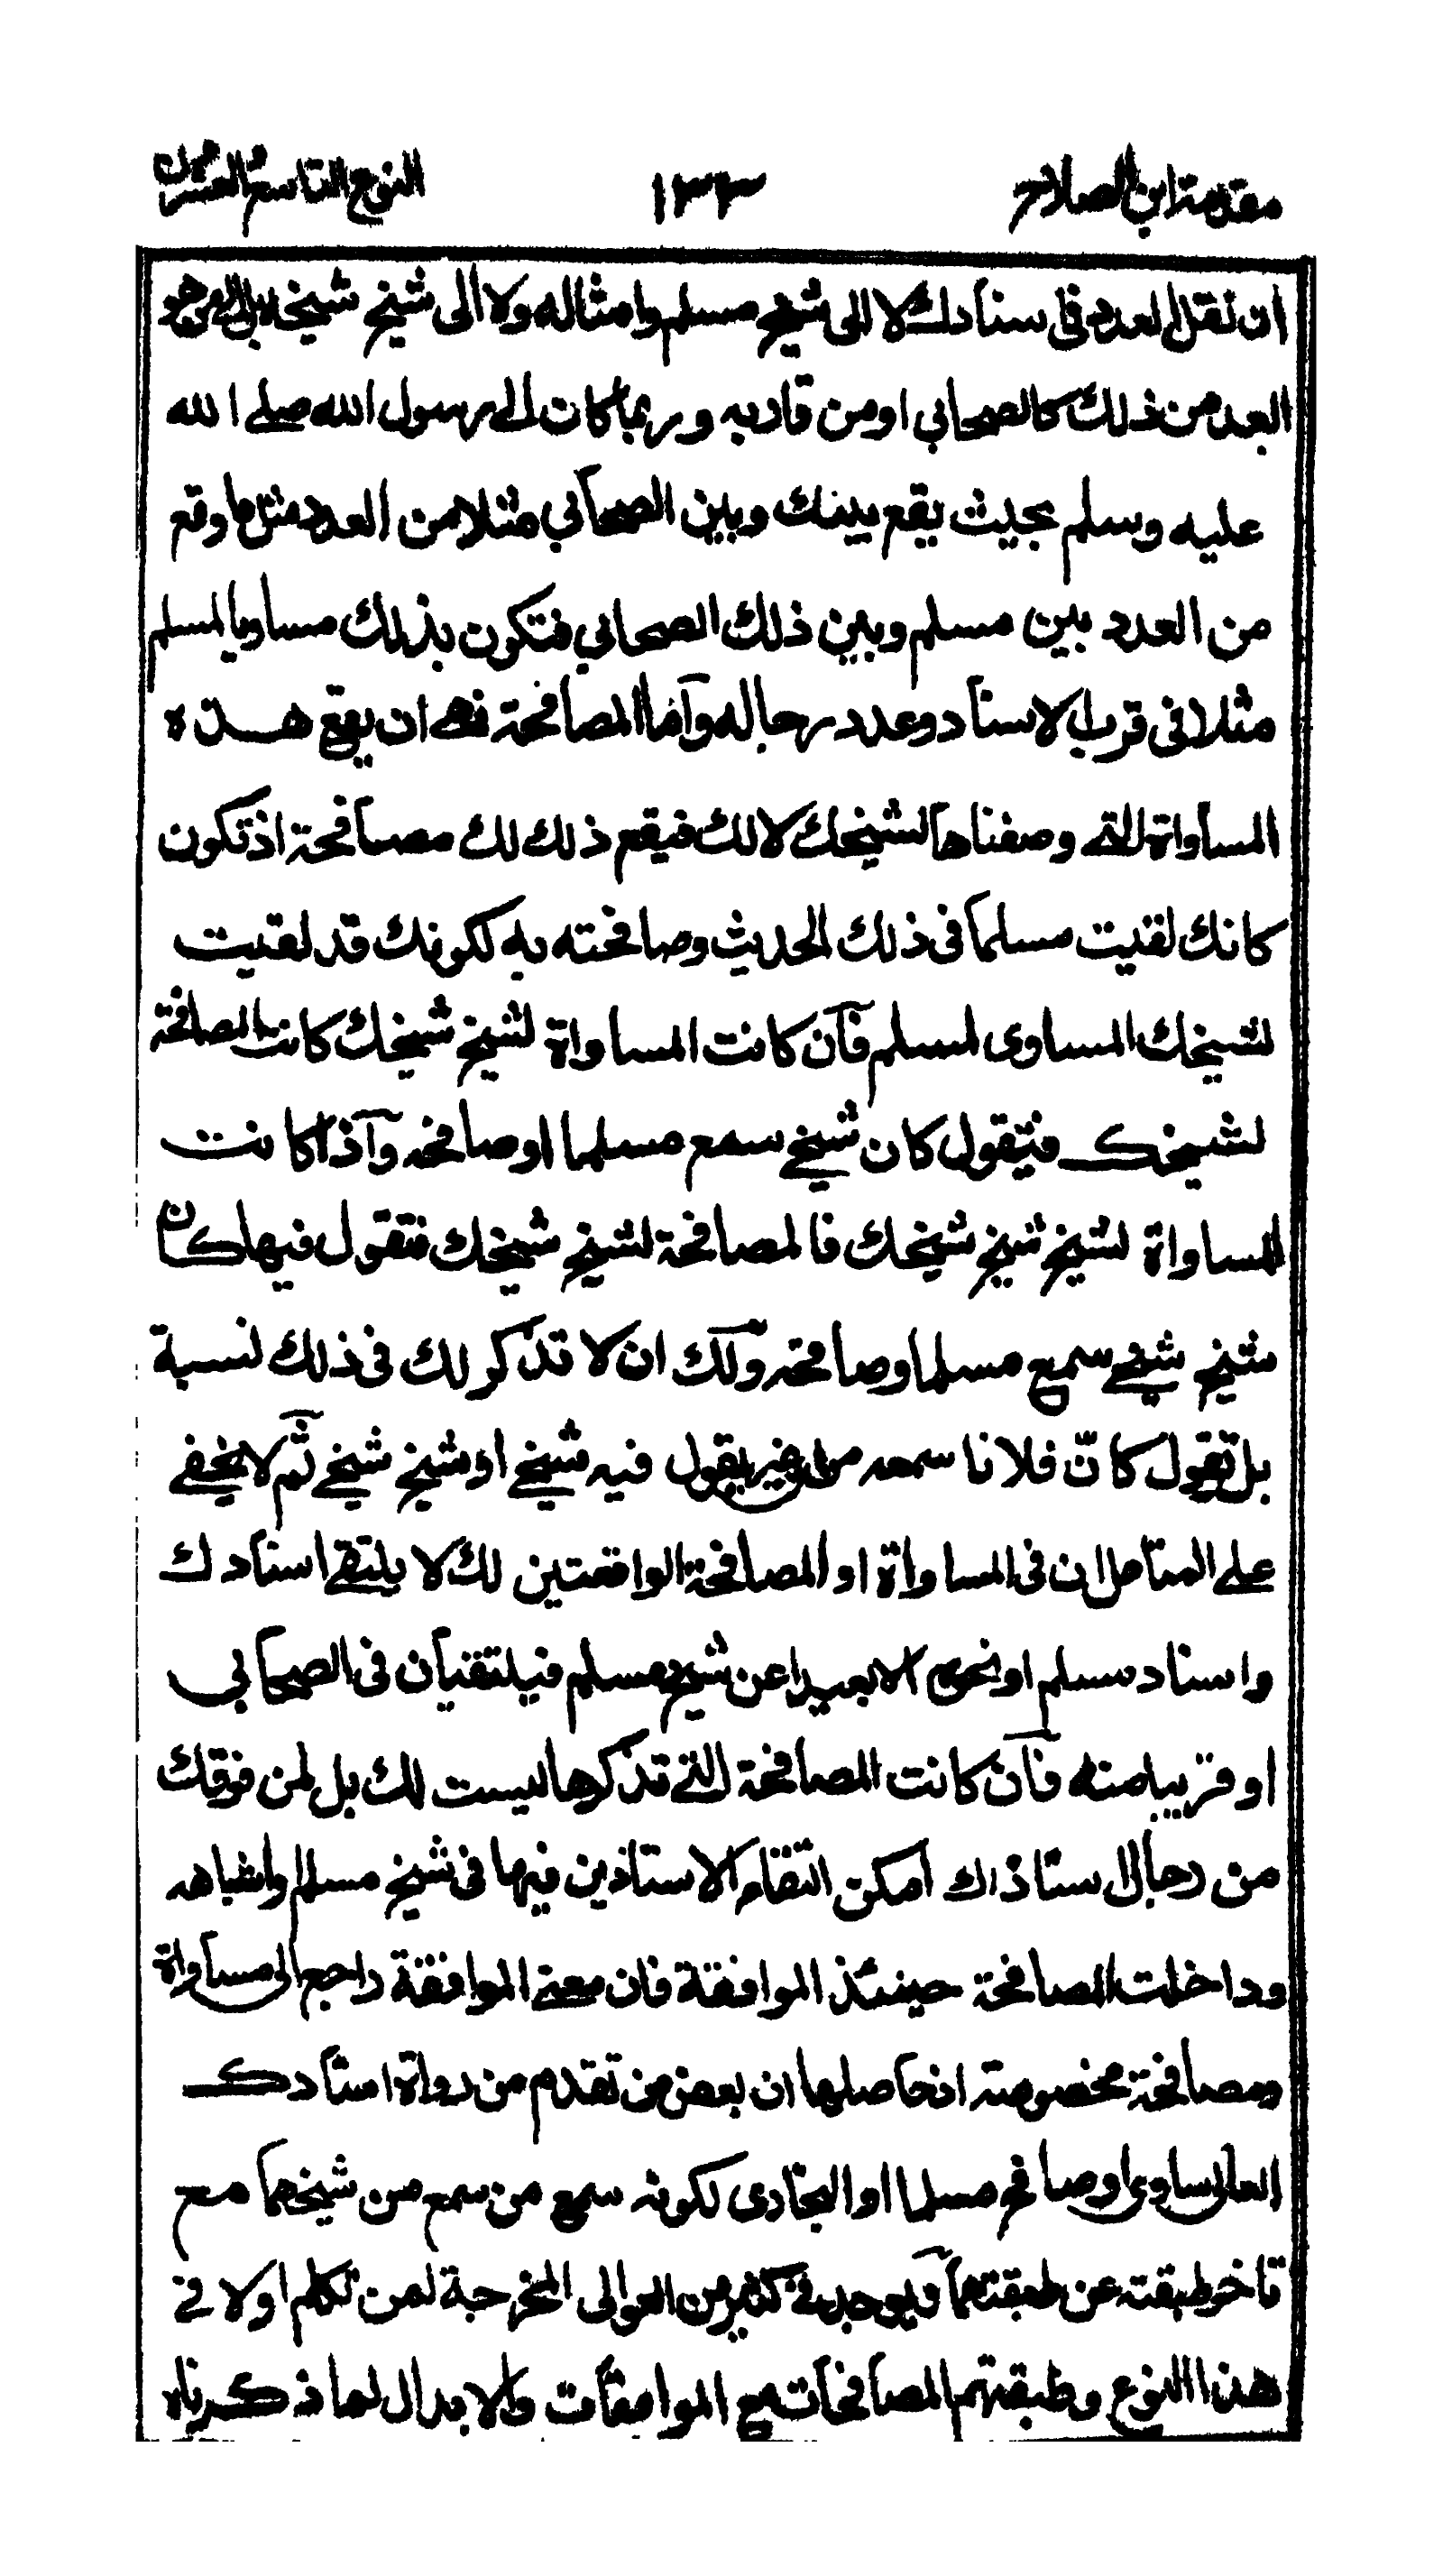 مقدمة ابن الصلاح ١٣٣ النوع التاسع والعشرون
ان تقل العدد فى سنادك لا الى شيخ مسلم وامثاله ولا الى شيخ شيخه بل الى من هو
ابعد من ذلك كالصحابي او من قاربه وربما كان الى رسول الله صلى الله
عليه وسلم بحيث يقع بينك وبين الصحابي مثلا من العدد مثل ما وقع
من العدد بين مسلم وبين ذلك الصحابي فتكون بذلك مساويا لمسلم
مثلا فى قرب الاسناد وعدد رجاله وآما المصافحة فهى ان يقع هذه
المساواة التى وصفناها لشيخك لا لك فيقع ذلك لك مصافحة اذ تكون
كانك لقيت مسلما فى ذلك الحديث وصافحته به لكونك قد لقيت
لشيخك المساوى لمسلم فآن كانت المساواة لشيخ شيخك كانت المصافحة
لشيخك فتقول كان شيخى سمع مسلما او صافحه وآذا كانت
المساواة لشيخ شيخ شيخك فالمصافحة لشيخ شيخك فتقول فيها كان
شيخ شيخى سمع مسلما وصافحه ولك ان لا تذكر لك فى ذلك نسبة
بل تقول كانّ فلانا سمعه من غير يقول فيه شيخى او شيخ شيخى ثم لا يخفى
على المتامل ان فى المساواة او المصافحة الواقعتين لك لا يلتقى اسنادك
واسناد مسلم او نحوه الا بعيدا عن شيخ مسلم فيلتقيان فى الصحابي
او قريبا منه فآن كانت المصافحة التى تذكرها ليست لك بل لمن فوقك
من رجال استاذك امكن التقاء الاستاذين فيها فى شيخ مسلم واشباهه
وداخلت المصافحة حينئذ الموافقة فان معنى الموافقة راجع الى مساواة
ومصافحة مخصوصة اذ حاصلها ان بعض من تقدم من رواة اسنادك
العالى ساوى او صافح مسلما او البخارى لكونه سمع من سمع من شيخهما مع
تاخر طبقته عن طبقتهما ويوجد فى كثير من العوالى المخرجة لمن تكلم اولا فى
هذا النوع وطبقتهم المصافحات مع الموافقات والابدال لما ذكرناه